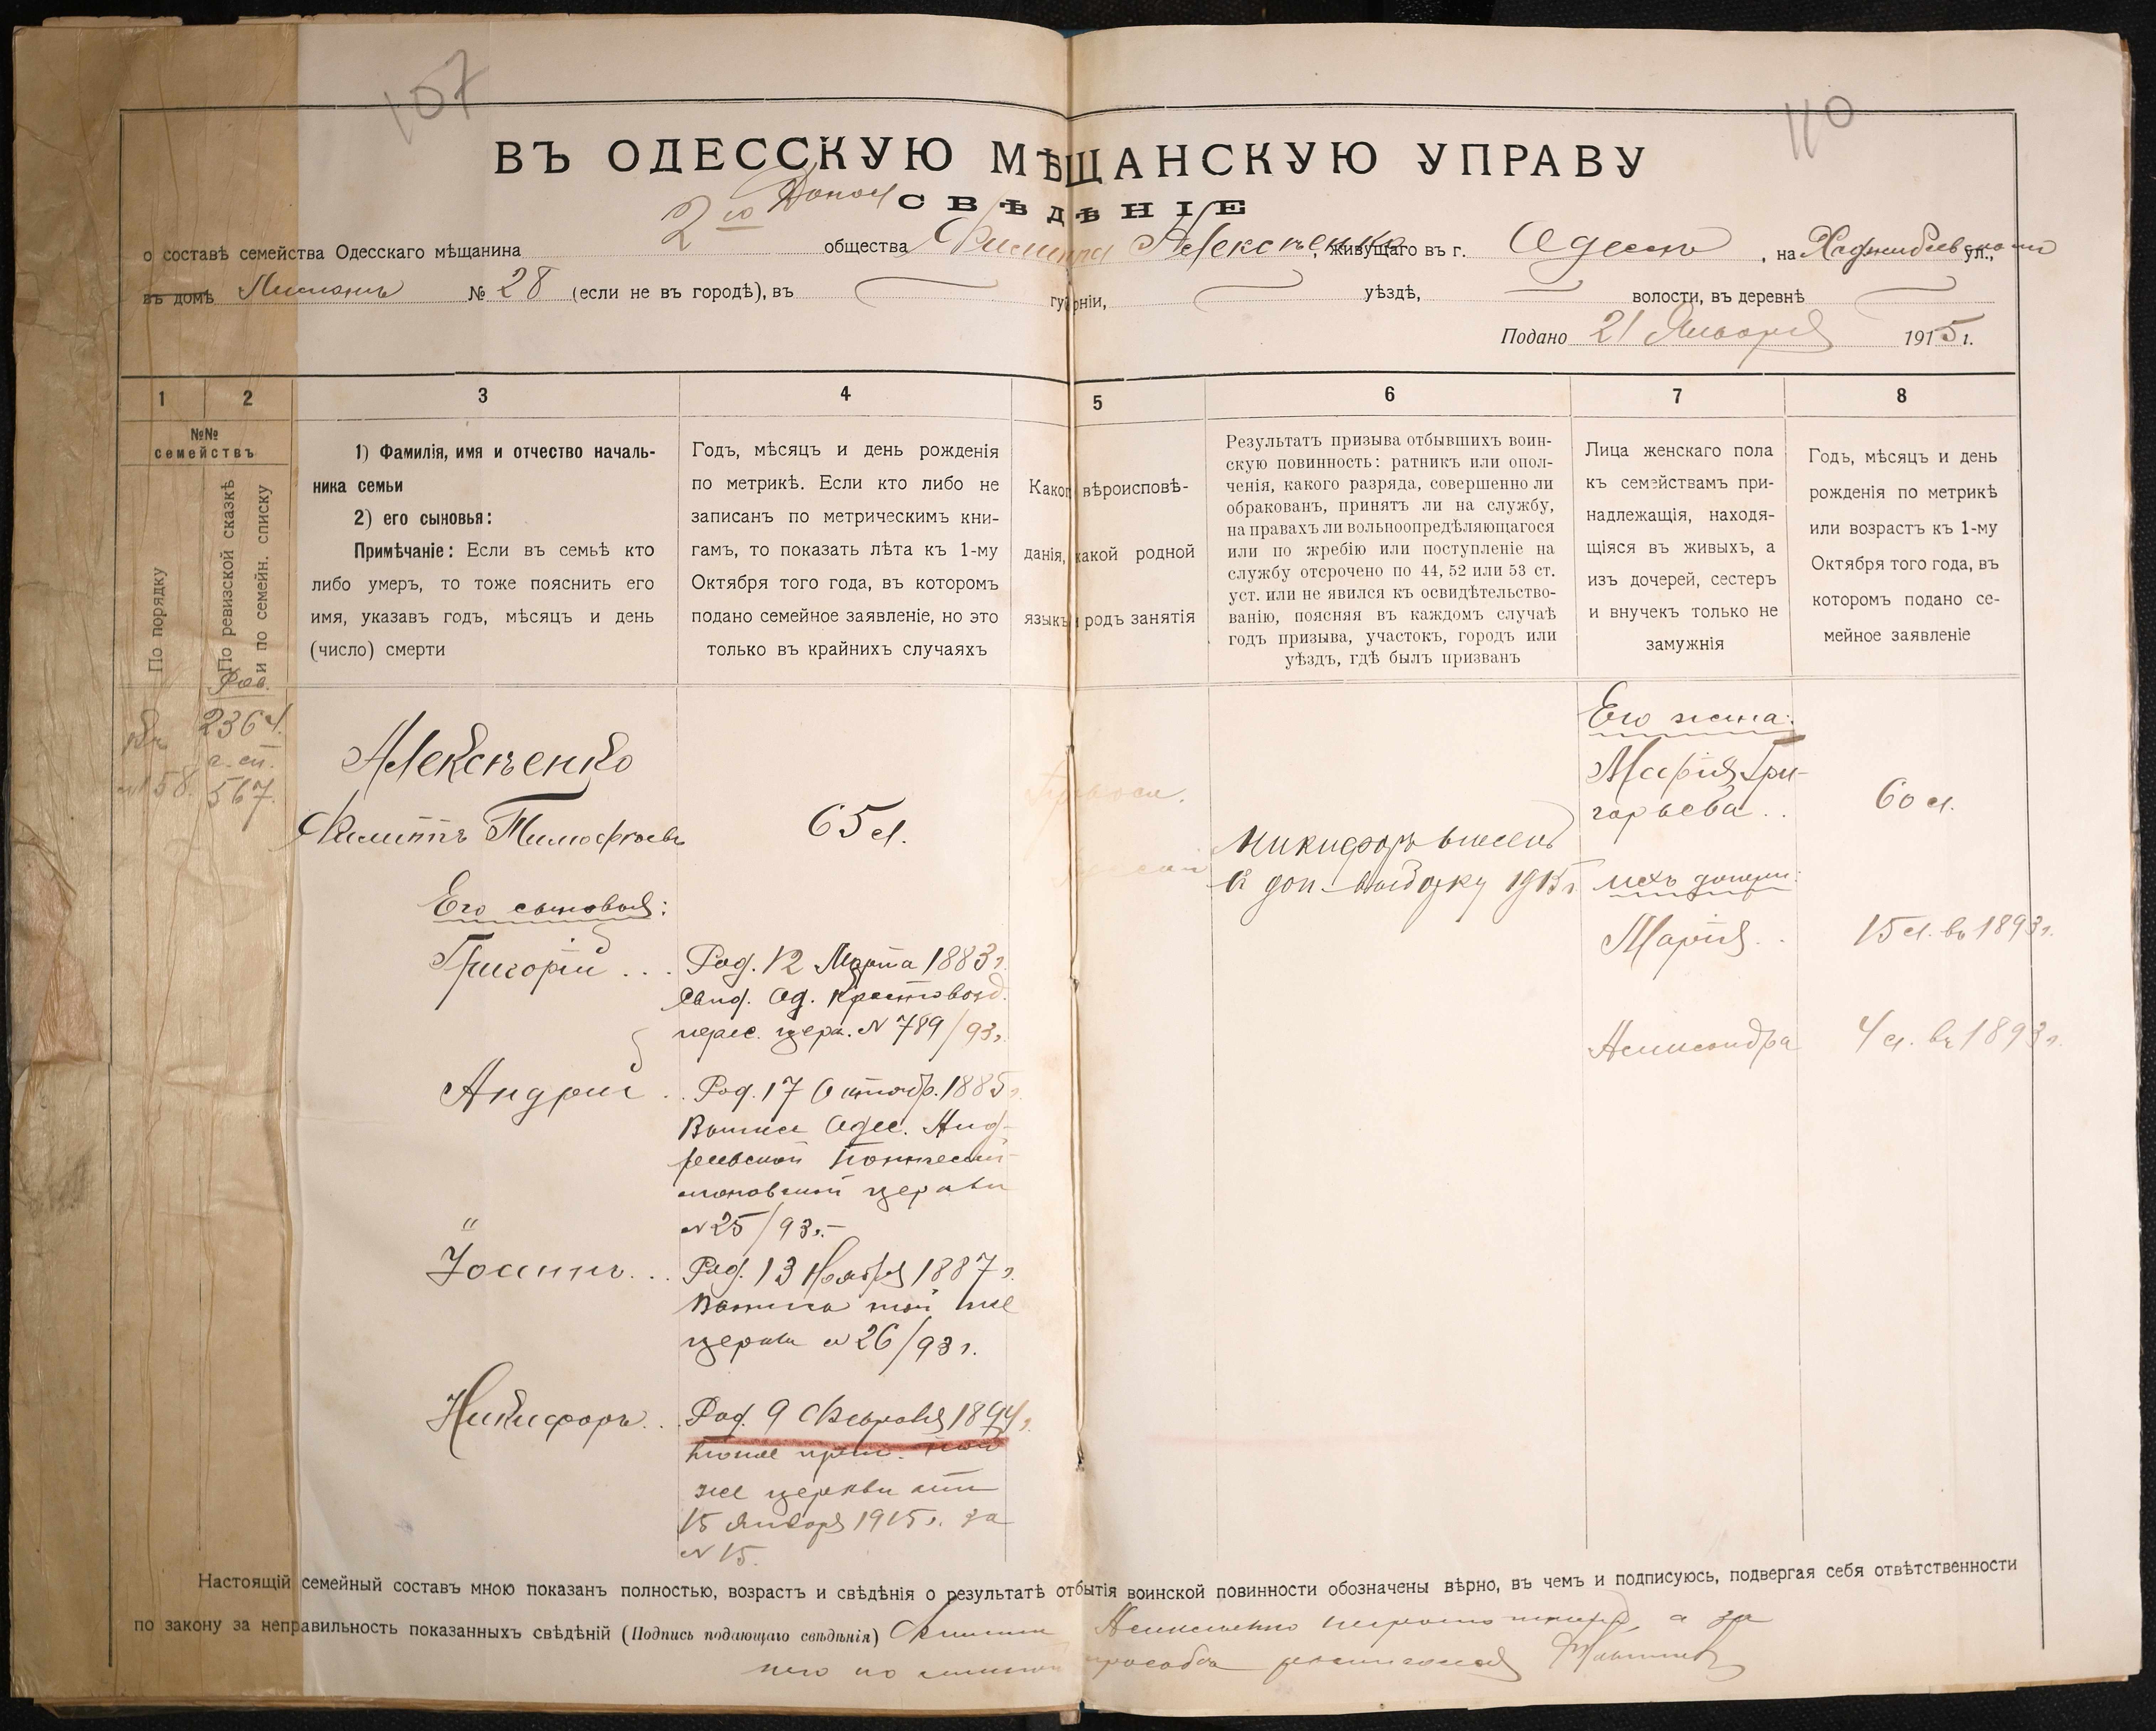 107
110
ВЪ ОДЕССКУЮ МѢЩАНСКУЮ УПРАВУ
СВѢДѢНІЕ
о составѣ семейства Одесскаго мѣщанина 2го общества Филиппа Алексѣенко, живущаго въ г. Одессѣ, на ул.,
въ домѣ № 28 (если не въ городѣ), въ губерніи, уѣздѣ, волости, въ деревнѣ
Подано 21 Января 1915 г.
1 2 3 4 5 6 7 8
№№
семействъ
По порядку
По ревизской сказкѣ
и по семейн. списку
1) Фамилія, имя и отчество началь-
ника семьи
2) его сыновья:
Примѣчаніе: Если въ семьѣ кто
либо умеръ, то тоже пояснить его
имя, указавъ годъ, мѣсяцъ и день
(число) смерти
Годъ, мѣсяцъ и день рожденія
по метрикѣ. Если кто либо не
записанъ по метрическимъ кни-
гамъ, то показать лѣта къ 1-му
Октября того года, въ которомъ
подано семейное заявленіе, но это
только въ крайнихъ случаяхъ
Какого вѣроисповѣ-
данія, какой родной
языкъ и родъ занятія
Результатъ призыва отбывшихъ воин-
скую повинность: ратникъ или опол-
ченія, какого разряда, совершенно ли
обракованъ, принятъ ли на службу,
на правахъ ли вольноопредѣляющагося
или по жребію или поступленіе на
службу отсрочено по 44, 52 или 53 ст.
уст. или не явился къ освидѣтельство-
ванію, поясняя въ каждомъ случаѣ
годъ призыва, участокъ, городъ или
уѣздъ, гдѣ былъ призванъ
Лица женскаго пола
къ семействамъ при-
надлежащія, находя-
щіяся въ живыхъ, а
изъ дочерей, сестеръ
и внучекъ только не
замужнія
Годъ, мѣсяцъ и день
рожденія по метрикѣ
или возрастъ къ 1-му
Октября того года, въ
которомъ подано се-
мейное заявленіе
2364.
158. 567.
Алексѣенко
Филиппъ Тимофѣевъ 65 л.
Правосл.
Русскій
Никифоръ внесенъ
въ доп. 1915 г.
Его жена:
Марія Гри-
горьева .. 60 л.
ихъ дочери:
Марія .. 15 л. въ 1893 г.
Александра 4 л. въ 1893 г.
Его сыновья:
Григорій ... Род. 12 Марта 1883 г.
Свид. Од. Крестовозд.
церк. № 789/93 г.
Андрей .. Род. 17 Октябр. 1885 г.
Выписъ Одес. Анд-
реевской
церкви
№ 25/93 г.
Іоаннъ ... Род. 13 Ноября 1887 г.
Выпись той же
церкви № 26/93 г.
Никифоръ .. Род. 9 Февраля 1894 г.
той
же церкви отъ
15 Января 1915 г. за
№ 15.
Настоящій семейный составъ мною показанъ полностью, возрастъ и свѣдѣнія о результатѣ отбытія воинской повинности обозначены вѣрно, въ чемъ и подписуюсь, подвергая себя отвѣтственности
по закону за неправильность показанныхъ свѣдѣній (Подпись подающаго свѣдѣнія) Филиппъ Алексѣенко неграмотный, а за
него по личной просьбѣ росписался